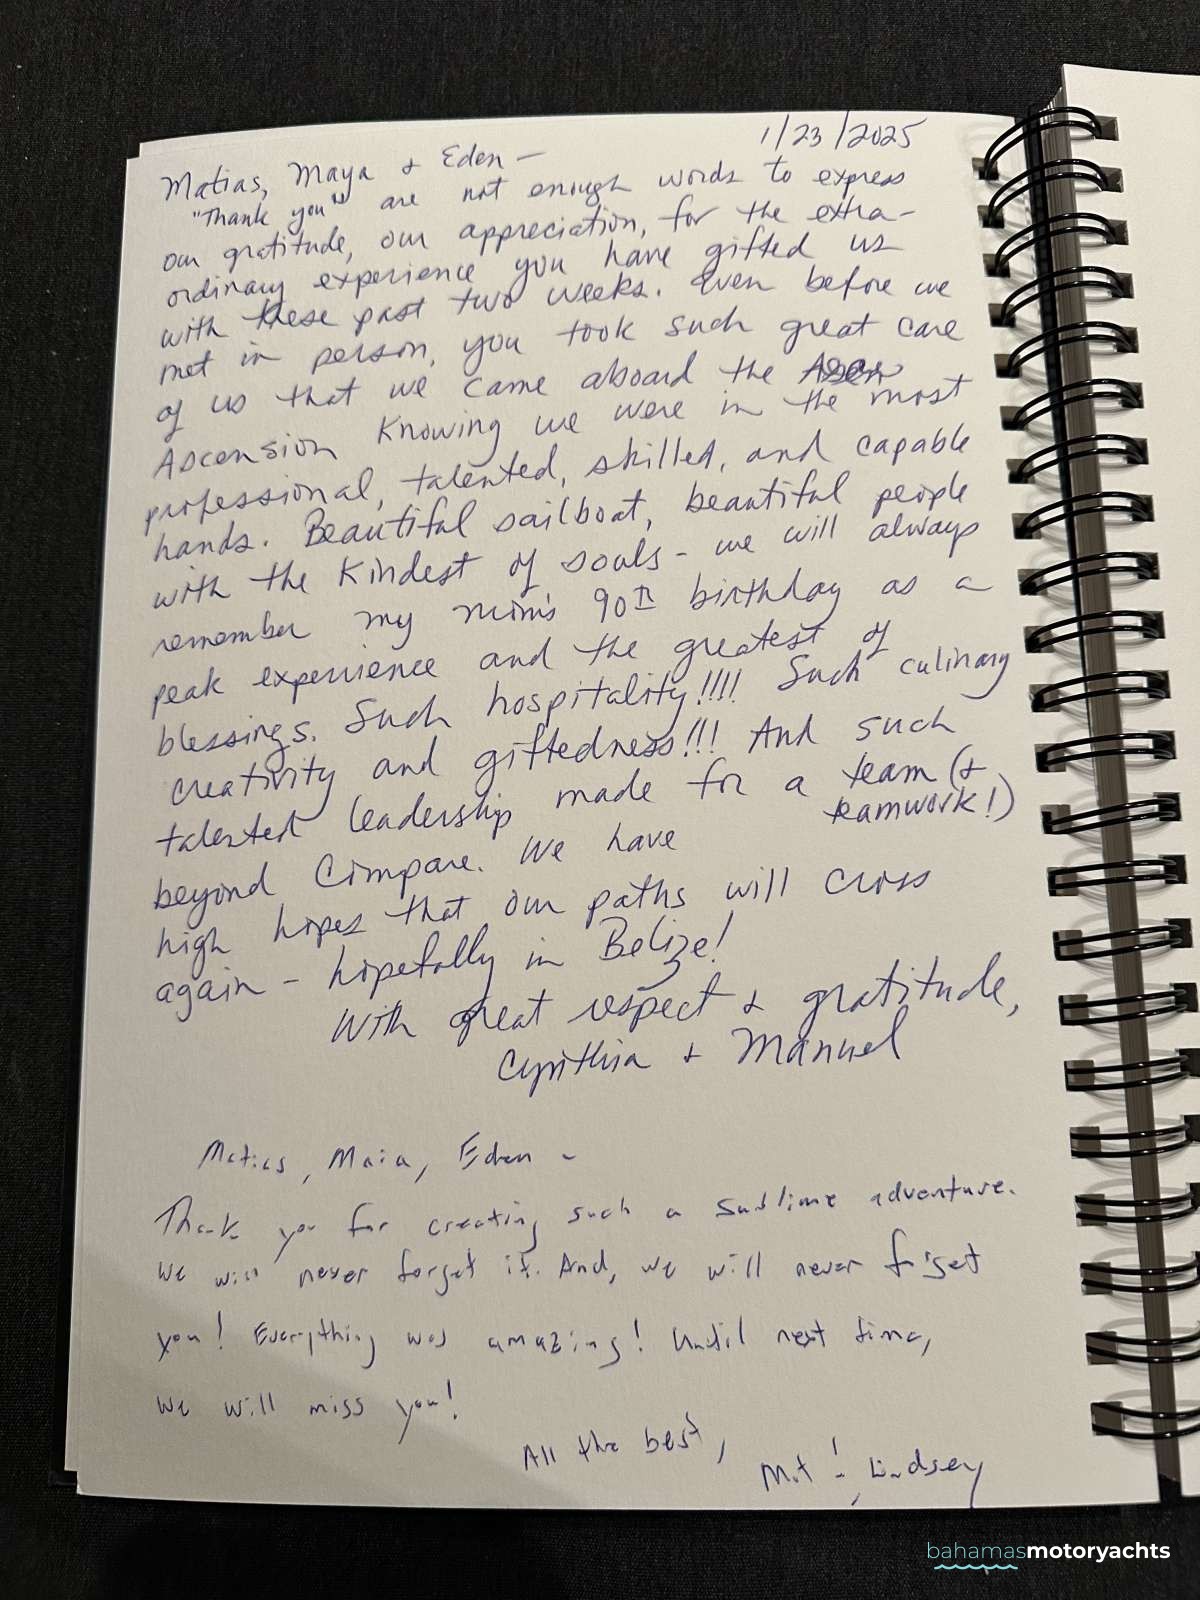 1/23/2025
Matias, Maya & Eden —
"Thank you" are not enough words to express
our gratitude, our appreciation, for the extra-
ordinary experience you have gifted us
with these past two weeks. Even before we
met in person, you took such great care
of us that we came aboard the
Ascension knowing we were in the most
professional, talented, skilled, and capable
hands. Beautiful sailboat, beautiful people
with the kindest of souls - we will always
remember my mom's 90th birthday as a
peak experience and the greatest of
blessings. Such hospitality!!!! Such culinary
creativity and giftedness!!! And such
talented leadership made for a team (&
teamwork!)
beyond compare. We have
high hopes that our paths will cross
again - hopefully in Belize!
With great respect & gratitude,
Cynthia & Manuel
Matias, Maia, Eden -
Thank you for creating such a sublime adventure.
We will never forget it. And, we will never forget
you! Everything was amazing! Until next time,
we will miss you!
All the best,
Mat & Lindsey
bahamasmotoryachts